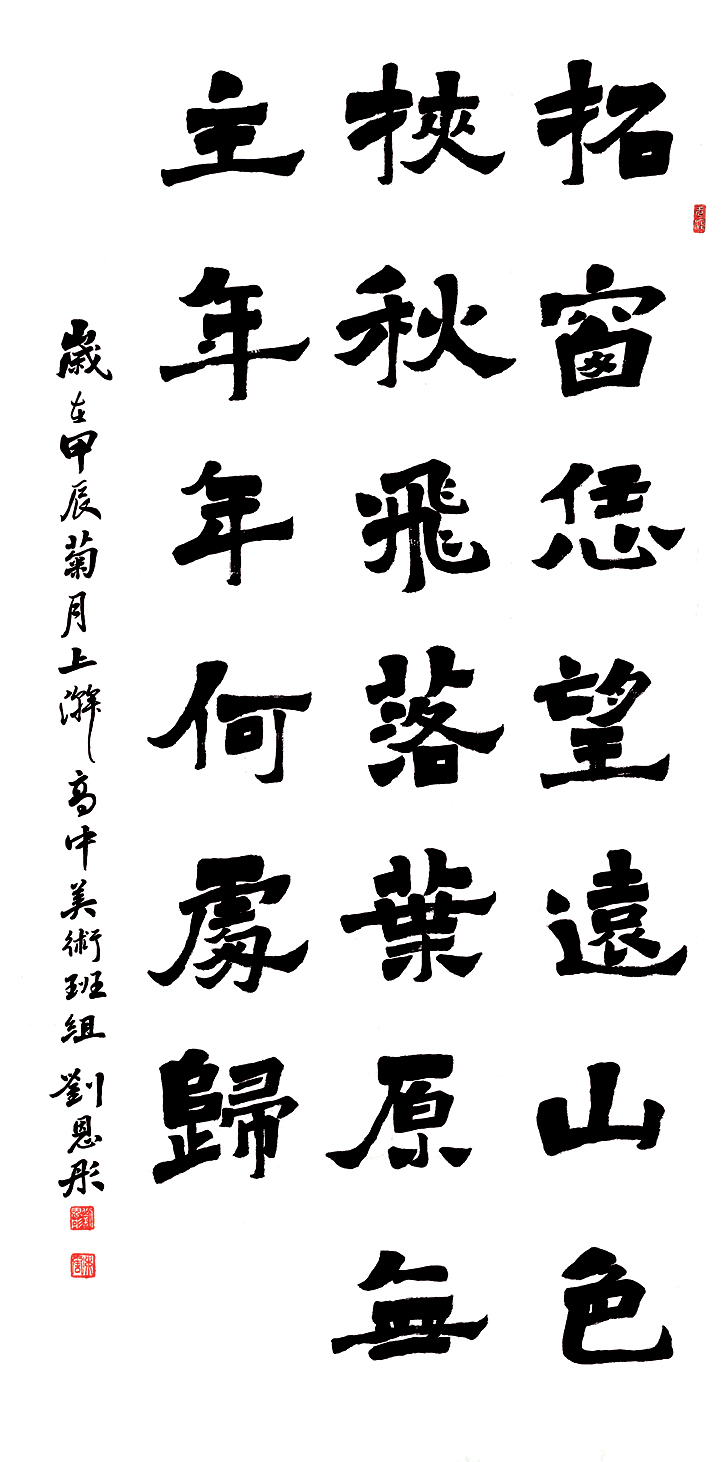 拓窗恁望遠山色
挾秋飛落葉原無
主年年何處歸
歲在甲辰菊月上澣高中美術班組劉恩彤